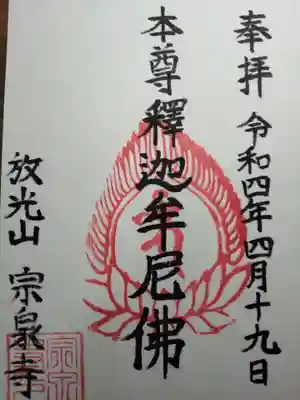 奉拝 令和四年四月十九日
本尊釋迦牟尼佛
放光山 宗泉寺